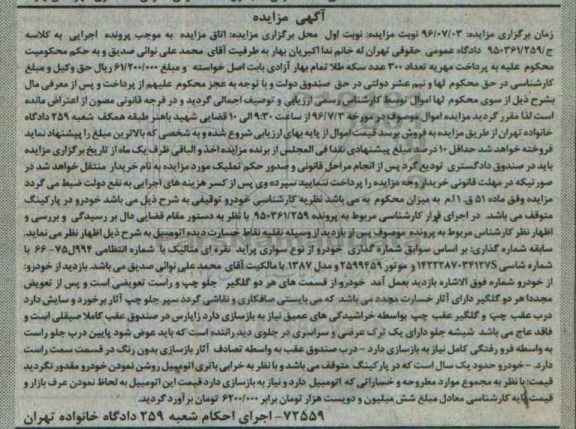 آگهی مزایده
زمان برگزاری مزایده: ۹۶/۰۷/۰۳ نوبت مزایده: نوبت اول محل برگزاری مزایده: اتاق مزایده به موجب پرونده اجرایی به کلاسه
ج/۹۵۰۳۶۱/۲۵۹ دادگاه عمومی حقوقی تهران له خانم ندا اکبریان بهار به طرفیت آقای محمد علی نوائی صدیق و به حکم محکومیت
محکوم علیه به پرداخت مهریه تعداد ۳۰۰ عدد سکه طلا تمام بهار آزادی بابت اصل خواسته و مبلغ ۶۱/۲۰۰/۰۰۰ ریال حق وکیل و مبلغ
کارشناسی در حق محکوم لها و نیم عشر دولتی در حق صندوق دولت و با توجه به عجز محکوم علیهم از پرداخت و پس از معرفی مال
بشرح ذیل از سوی محکوم لها اموال توسط کارشناس رسمی ارزیابی و توصیف اجمالی گردید و در فرجه قانونی مصون از اعتراض مانده
است لذا مقرر گردید مزایده اموال موصوف در مورخه ۹۶/۷/۳ از ساعت ۹:۳۰ الی ۱۰ قضایی شهید باهنر طبقه همکف شعبه ۲۵۹ دادگاه
خانواده تهران از طریق مزایده به فروش برسد قیمت اموال از پایه بهای ارزیابی شروع شده و به شخصی که بالاترین مبلغ را پیشنهاد نماید
فروخته خواهد شد حداقل ۱۰ درصد مبلغ پیشنهادی نقدا فی المجلس از برنده مزایده اخذ و الباقی ظرف یک ماه از تاریخ برگزاری مزایده
باید در صندوق دادگستری تودیع گردد پس از انجام مراحل قانونی و صدور حکم تملیک مورد مزایده به نام خریدار منتقل خواهد شد در
صورتیکه در مهلت قانونی خریدار وجه مزایده را پرداخت ننمایید سپرده وی پس از کسر هزینه های اجرایی به نفع دولت ضبط می گردد
مزایده وفق ماده ۵۱ ق. ا.م به میزان محکوم به می باشد نظریه کارشناسی خودرو توقیفی به شرح ذیل می باشد خودرو در پارکینگ
متوقف می باشد. در اجرای قرار کارشناسی مربوط به پرونده ۹۵۰۳۶۱/۲۵۹ با نظر به دستور مقام قضایی دال بر رسیدگی و بررسی و
اظهار نظر کارشناس مربوط به پرونده موصوف پس از بازدید از وسیله نقلیه نقاط خسارت دیده اتومبیل به شرح ذیل اظهار نظر می نماید.
سابقه شماره گذاری: بر اساس سوابق شماره گذاری خودرو از نوع سواری پراید نقره ای متالیک با شماره انتظامی ۹۹۴ل۷۵-۶۶ با
شماره شاسی و موتور ۲۵۹۹۴۵۹ و مدل ۱۳۸۷ با مالکیت آقای محمد علی نوائی صدیق می باشد. بازدید از خودرو:
از خودرو شماره فوق الاشاره بازدید بعمل آمد خودرو از قسمت های هر دو گلگیر جلو چپ و راست تعویضی است و پس از تعویض
مجددا هر دو گلگیر دارای آثار خسارت مجدد می باشد که می بایستی صافکاری و نقاشی گردد سپر جلو چپ آثار برخورد و سایش دارد
درب عقب چپ و گلگیر عقب چپ بواسطه خراشیدگی های عمیق نیاز به بازسازی دارد زاپارس در صندوق عقب کاملا صیقلی است و
فاقد عاج می باشد شیشه جلو دارای یک ترک عرضی و سراسری در جلوی دید راننده است که باید عوض شود پایین درب جلو راست
به واسطه فرو رفتگی کامل نیاز به بازسازی دارد - درب صندوق عقب به واسطه تصادف آثار بازسازی بدون رنگ در قسمت سمت راست
دارد. - خودرو حدود یک سال است که در پارکینگ متوقف می باشد و با نظر به خرابی باتری اتومبیل روشن نمودن خودرو مقدور نگردید
قیمت: با نظر به مجموع موارد مطروحه و خساراتی که اتومبیل دارد و نیاز به بازسازی دارد قیمت این اتومبیل به لحاظ نمودن عرف بازار و
قیمت پایه کارشناسی معادل مبلغ شش میلیون و دویست هزار تومان برابر ۶۲۰۰/۰۰۰ تومان برآورد گردید.
۷۲۵۵۹- اجرای احکام شعبه ۲۵۹ دادگاه خانواده تهران